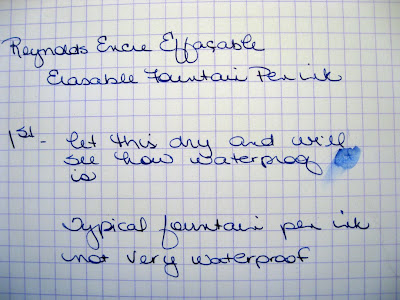 Reynolds Encre Effaçable
Erasable Fountain Pen ink
1st - let this dry and will
see how waterproof
is
Typical fountain pen ink
not very waterproof